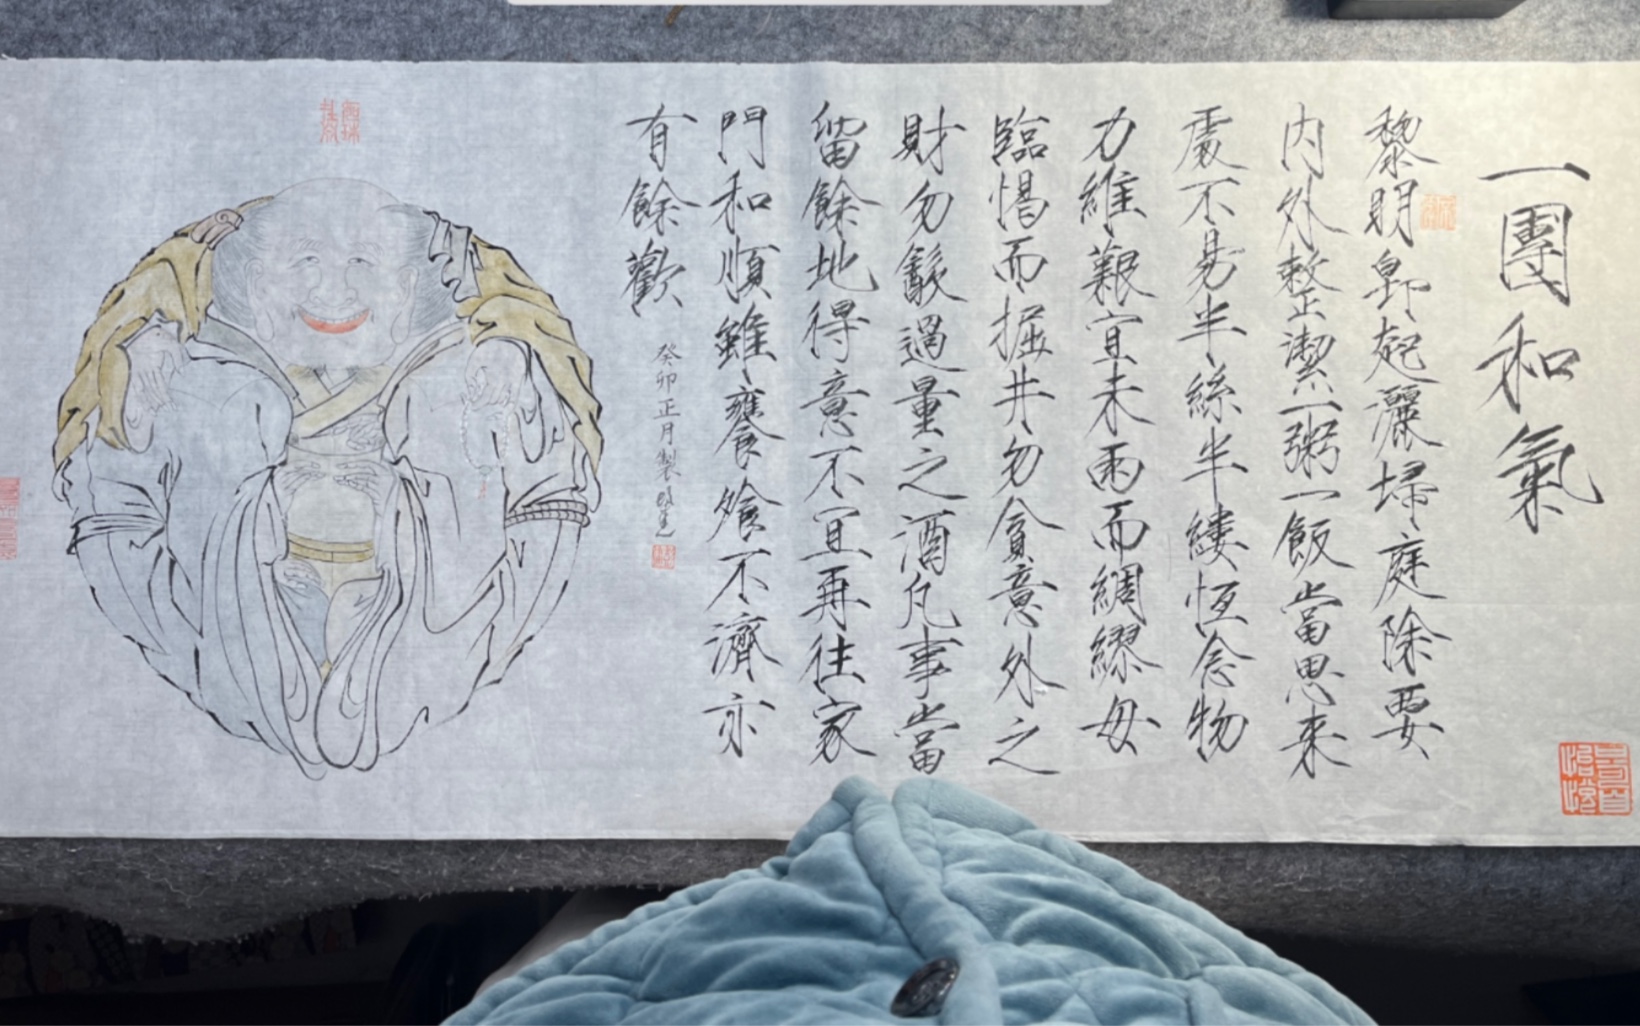 一團和氣
黎明即起灑掃庭除要
內外整潔一粥一飯當思來
處不易半絲半縷恆念物
力維艱宜未雨而綢繆毋
臨渴而掘井勿貪意外之
財勿飲過量之酒凡事當
留餘地得意不宜再往家
門和順雖饔飧不濟亦
有餘歡
癸卯正月製